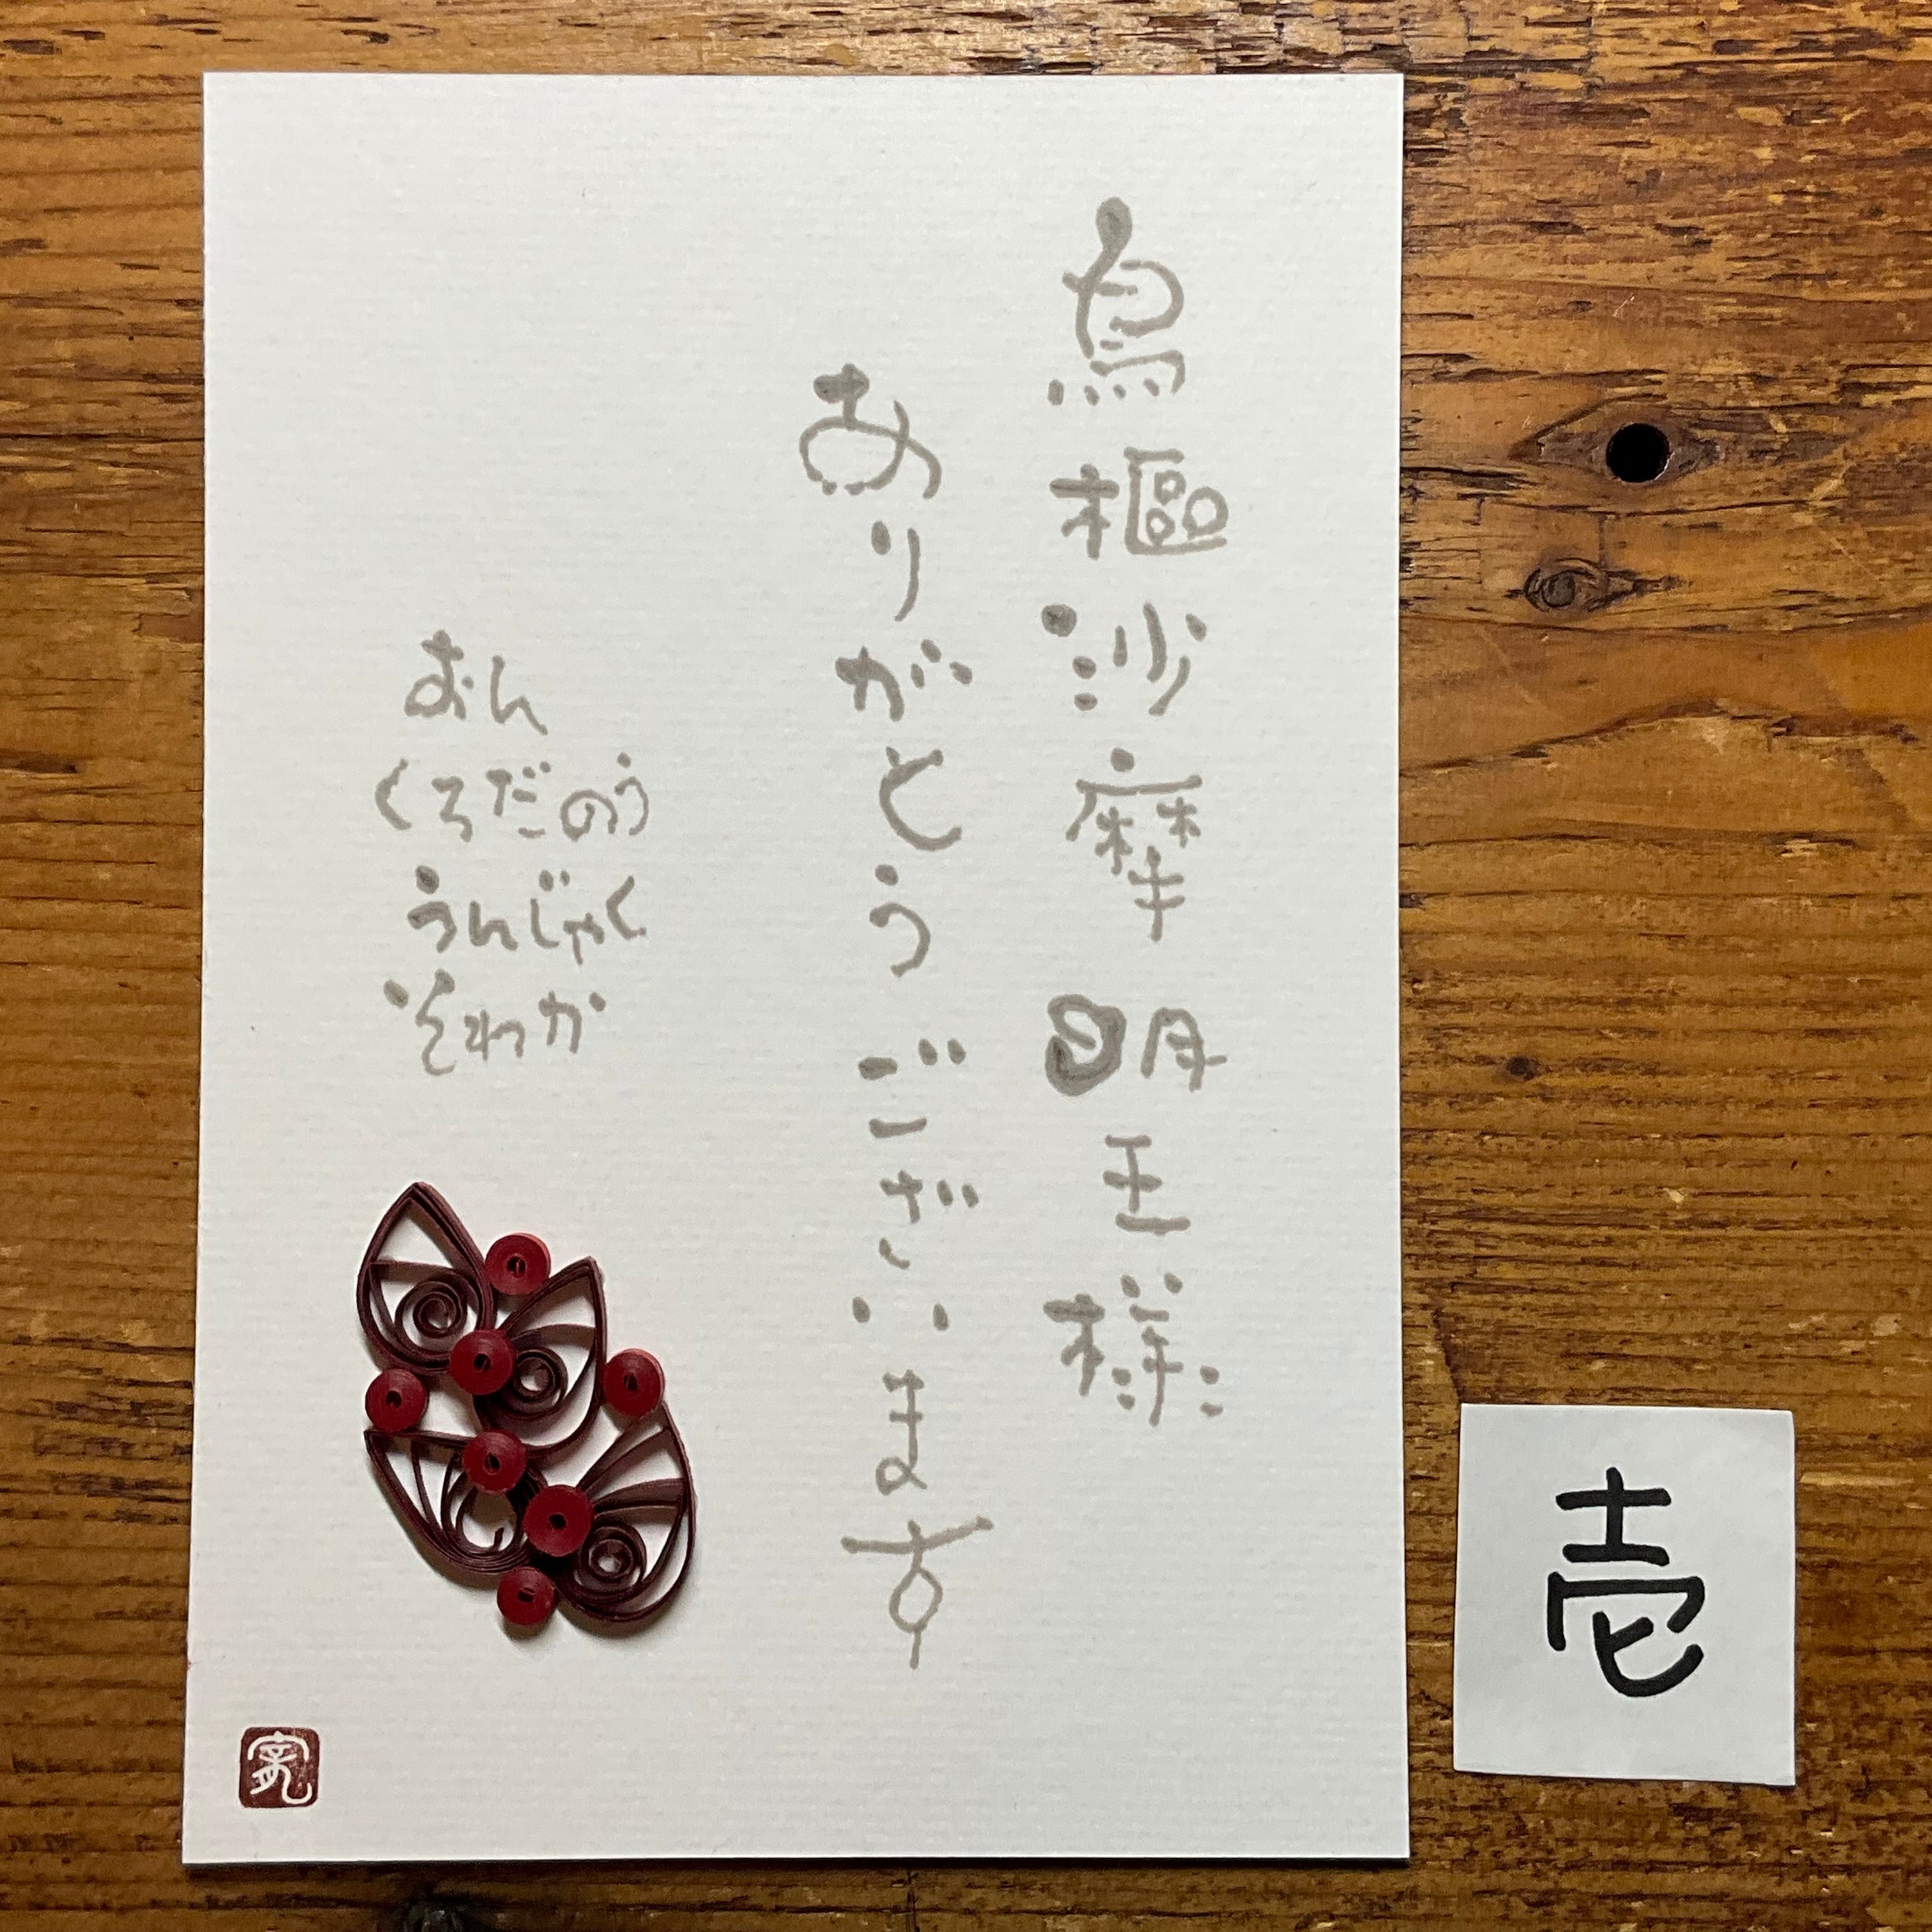 烏樞沙摩明王様
ありがとうございます
おん
くろだのう
うんじゃく
そわか
壱